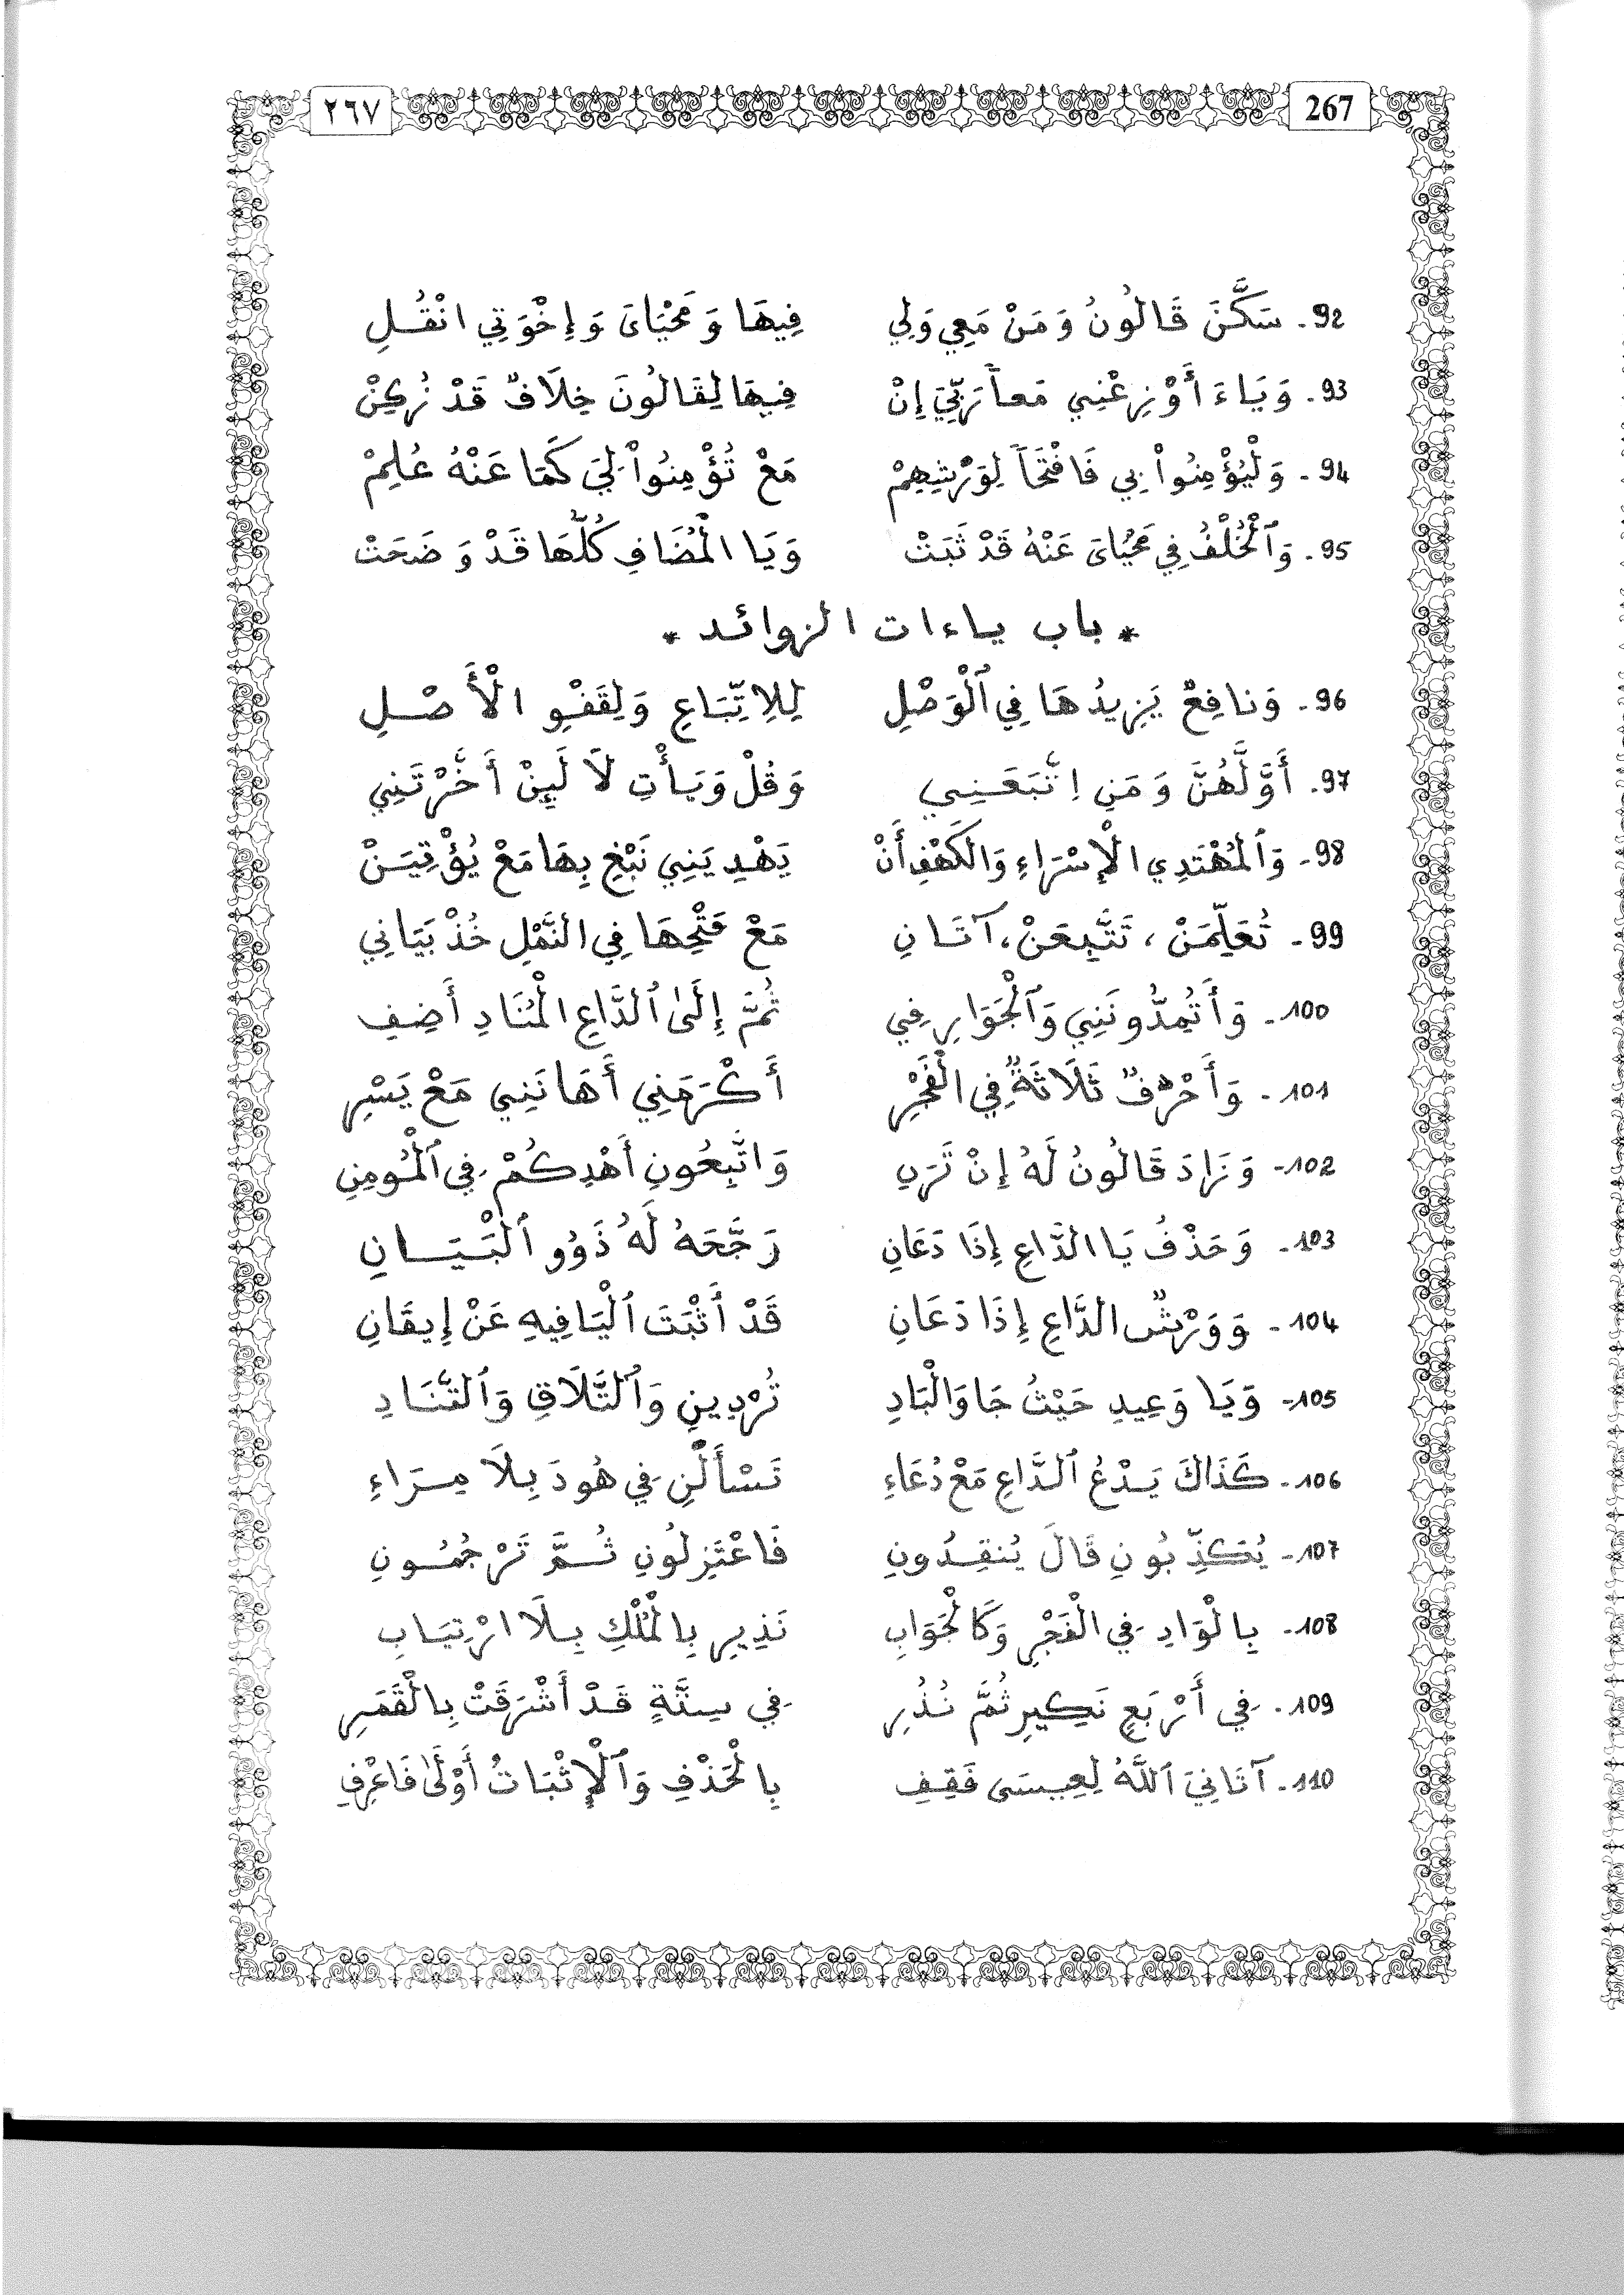 ٢٦٧ 267
92- سَكَّنَ قَالُونُ وَمَنْ مَعِي وَلِي فِيهَا وَمَحْيَايَ وَإِخْوَتِي انْقُلِ
93- وَيَاءَ أَوْزِعْنِي مَعاً رَبِّيَ إِنْ فِيهَا لِقَالُونَ خِلَافٌ قَدْ زُكِنْ
94- وَلْيُؤْمِنُواْ بِي فَافْتَحاً لِوَرْشِهِمْ مَعْ تُؤْمِنُواْ لِيَ كَمَا عَنْهُ عُلِمْ
95- وَٱلْخُلْفُ فِي مَحْيَايَ عَنْهُ قَدْ ثَبَتْ وَيَا الْمُضَافِ كُلُّهَا قَدْ وَضَحَتْ
* باب ياءات الزوائد *
96- وَنَافِعٌ يَزِيدُهَا فِي ٱلْوَصْلِ لِلِاتِّبَاعِ وَلِقَفْوِ الْأَصْلِ
97- أَوَّلُهُنَّ وَمَنِ اِتَّبَعَنِي وَقُلْ وَيَأْتِ لَا لَئِنْ أَخَّرْتَنِي
98- وَٱلْمُهْتَدِي الْإِسْرَاءِ وَالْكَهْفِ أَنْ يَهْدِيَنِي نَبْغِ بِهَا مَعْ يُؤْتِيَنْ
99- تُعَلِّمَنْ، تَتَّبِعَنْ، آتَانِ مَعْ فَتْحِهَا فِي النَّمْلِ خُذْ بَيَانِي
100- وَأَتُمِدُّونَنِي وَٱلْجَوَارِ فِي ثُمَّ إِلَى ٱلدَّاعِ الْمُنَادِ أَضِفِ
101- وَأَحْرُفٌ ثَلَاثَةٌ فِي الْفَجْرِ أَكْرَمَنِي أَهَانَنِي مَعْ يَسْرِ
102- وَزَادَ قَالُونُ لَهُ إِنْ تَرَنِ وَاتَّبِعُونِ أَهْدِكُمْ فِي ٱلْمُومِنِ
103- وَحَذْفُ يَا الدَّاعِ إِذَا دَعَانِ رَجَّحَهُ لَهُ ذَوُو ٱلْبَيَانِ
104- وَوَرْشٌ الدَّاعِ إِذَا دَعَانِ قَدْ أَثْبَتَ ٱلْيَا فِيهِ عَنْ إِيقَانِ
105- وَيَا وَعِيدِ حَيْثُ جَا وَالْبَادِ تُرْدِينِ وَٱلتَّلَاقِ وَٱلتَّنَادِ
106- كَذَاكَ يَدْعُ ٱلدَّاعِ مَعْ دُعَاءِ تَسْأَلَنِّ فِي هُودَ بِلَا مِرَاءِ
107- يُكَذِّبُونِ قَالَ يُنقِذُونِ فَاعْتَزِلُونِ ثُمَّ تَرْجُمُونِ
108- بِالْوَادِ فِي الْفَجْرِ وَكَالْجَوَابِ نَذِيرِ بِالْمُلْكِ بِلَا ارْتِيَابِ
109- فِي أَرْبَعٍ نَكِيرِ ثُمَّ نُذُرِ فِي سِتَّةٍ قَدْ أَشْرَقَتْ بِالْقَمَرِ
110- آتَانِيَ ٱللَّهُ لِعِيسَى فَقِفِ بِالْحَذْفِ وَٱلْإِثْبَاتُ أَوْلَى فَاعْرِفِ